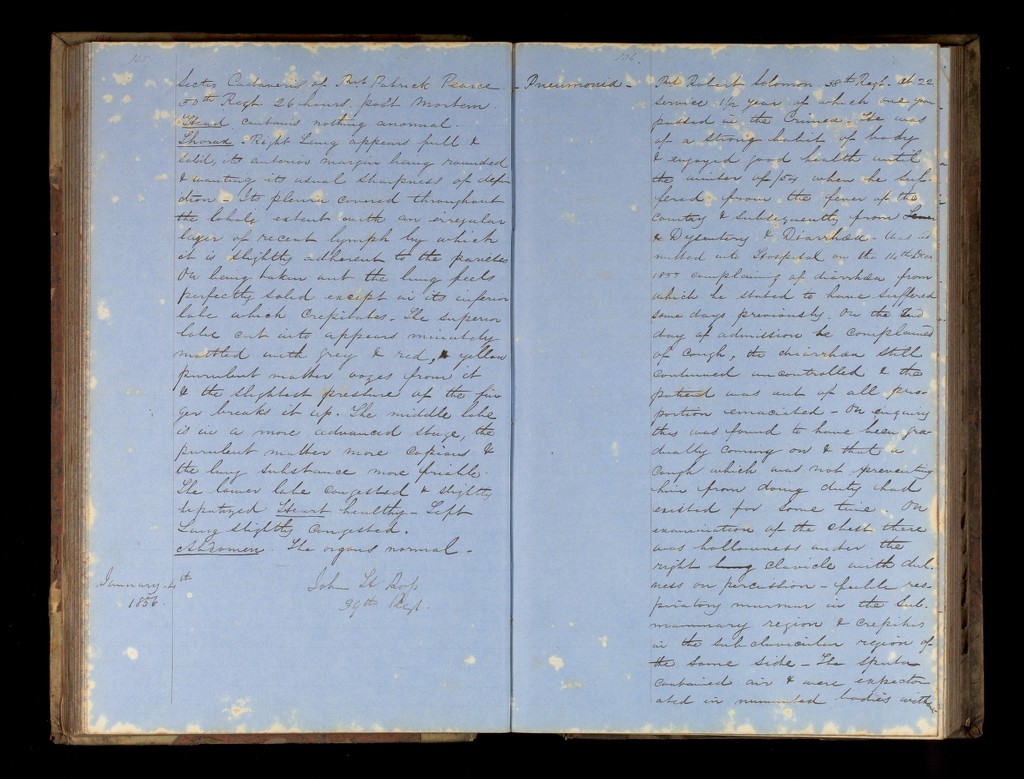 105
Sectio Cadaveris of Pvt. Patrick Pearce
50th Regt. 26 hours post mortem.
Head contains nothing anormal.
Thorax - Right Lung appears full &
solid, its anterior margin being rounded
& wanting its usual sharpness of defin
ition - Its pleura covered throughout
the whole extent with an irregular
layer of recent lymph by which
it is slightly adherent to the parietes
On being taken out the lung feels
perfectly solid except in its inferior
lobe which Crepitates. The superior
lobe cut into appears minutely
mottled with grey & red, yellow
purulent matter oozes from it
& the slightest pressure of the fin
ger breaks it up. The middle lobe
is in a more advanced stage, the
purulent matter more copious &
the lung substance more friable.
The lower lobe congested & slightly
hepatized Heart healthy - Left
Lung slightly Congested.
Abdomen. The organs normal -
January 4th
1856.
John St
39th Regt.
106.
- Pneumonia -
Pvt Robert Solomon 38th Regt. Æt 22
Service 1 1/2 year of which one year
passed in the Crimea. He was
of a strong habit of body
& enjoyed good health until
the winter of /54 when he suf-
fered from the fever of the
Country & subsequently from
& Dysentery & Diarrhœa - Was ad
mitted into Hospital on the
1855 complaining of diarrhœa from
which he stated to have suffered
some days previously. On the 2nd
day of admission he complained
of Cough, the diarrhœa still
continued uncontrolled & the
patient was out of all pro-
portion emaciated - On enquiry
this was found to have been gra
dually coming on & that a
Cough which was not preventing
him from doing duty had
existed for some time. On
examination of the chest there
was hollowness under the
right clavicle with dul
ness on percussion - feeble res-
piratory murmur in the Sub.
mammary region & crepitus
in the sub clavicular region of
the same side - The Sputa
contained air & were expector
ated in nummulated bodies with